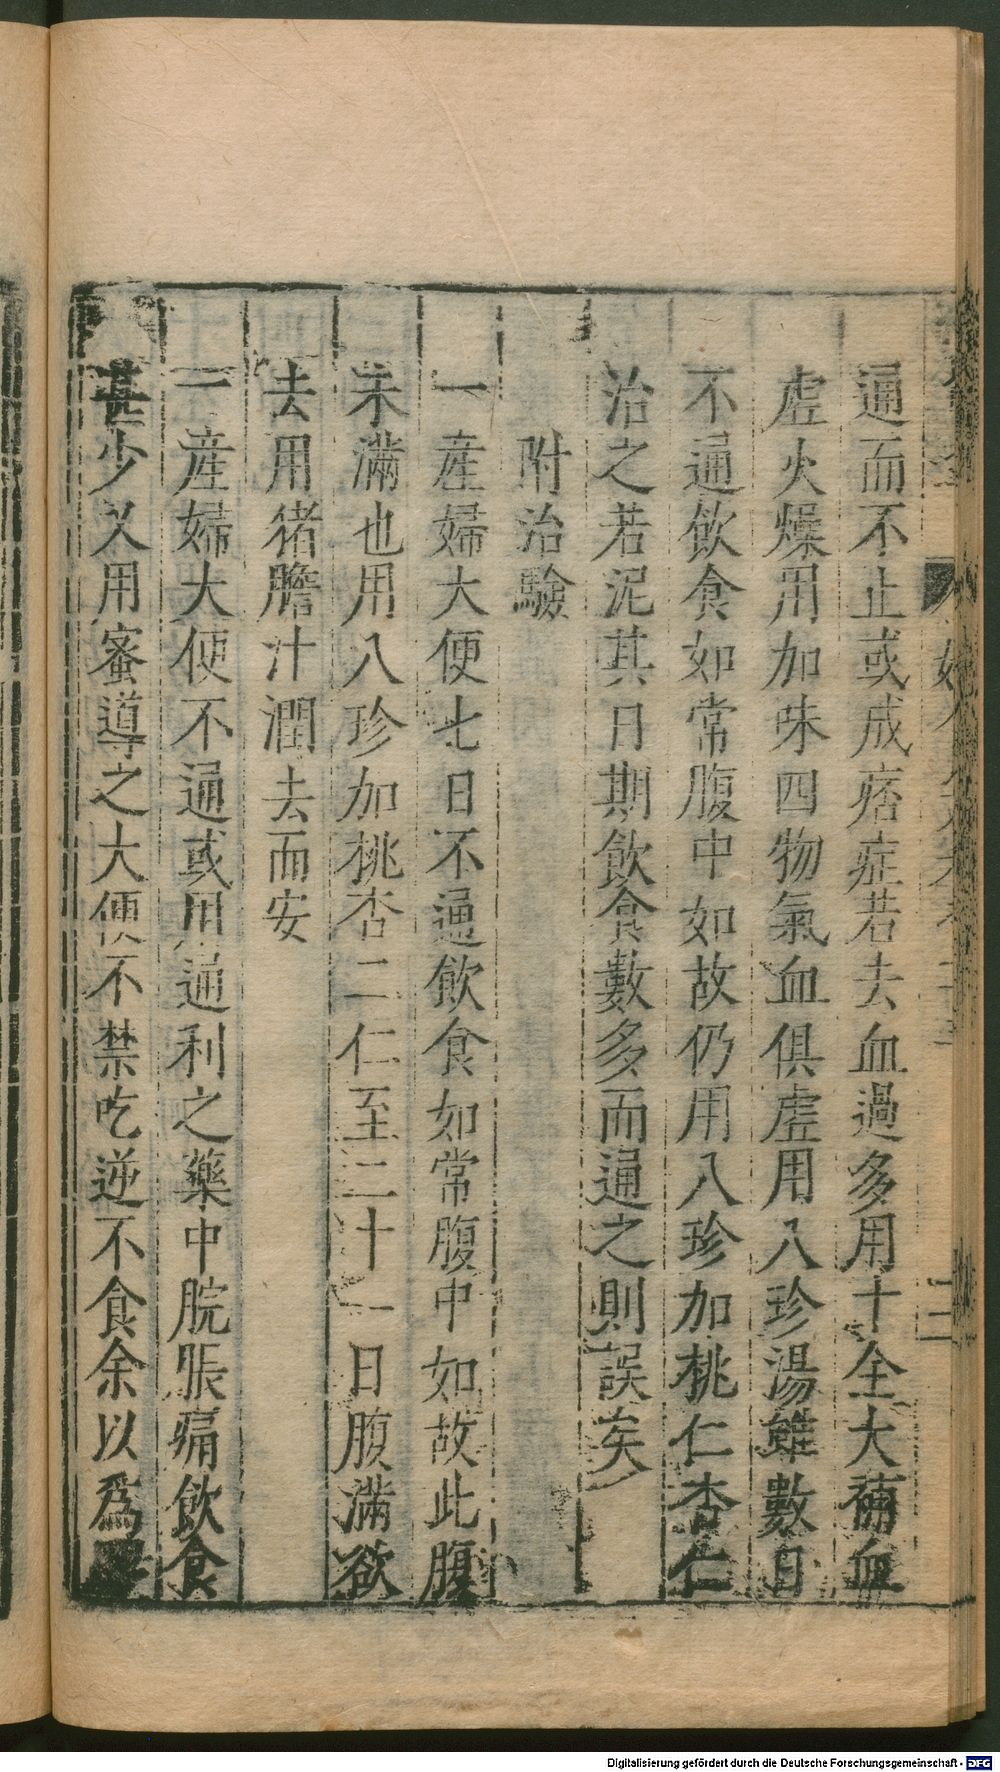 通而不止或成痞症若去血過多用十全大補血
虛火燥用加味四物氣血俱虛用八珍湯雖數日
不通飲食如常腹中如故仍用八珍加桃仁杏仁
治之若泥其日期飲食數多而通之則誤矣
附治驗
一產婦大便七日不通飲食如常腹中如故此腹
未滿也用八珍加桃杏二仁至二十一日腹滿欲
去用猪膽汁潤去而安
一產婦大便不通或用通利之藥中脘脹痛飲食
甚少又用蜜導之大便不禁吃逆不食余以爲
Digitalisierung gefördert durch die Deutsche Forschungsgemeinschaft - DFG